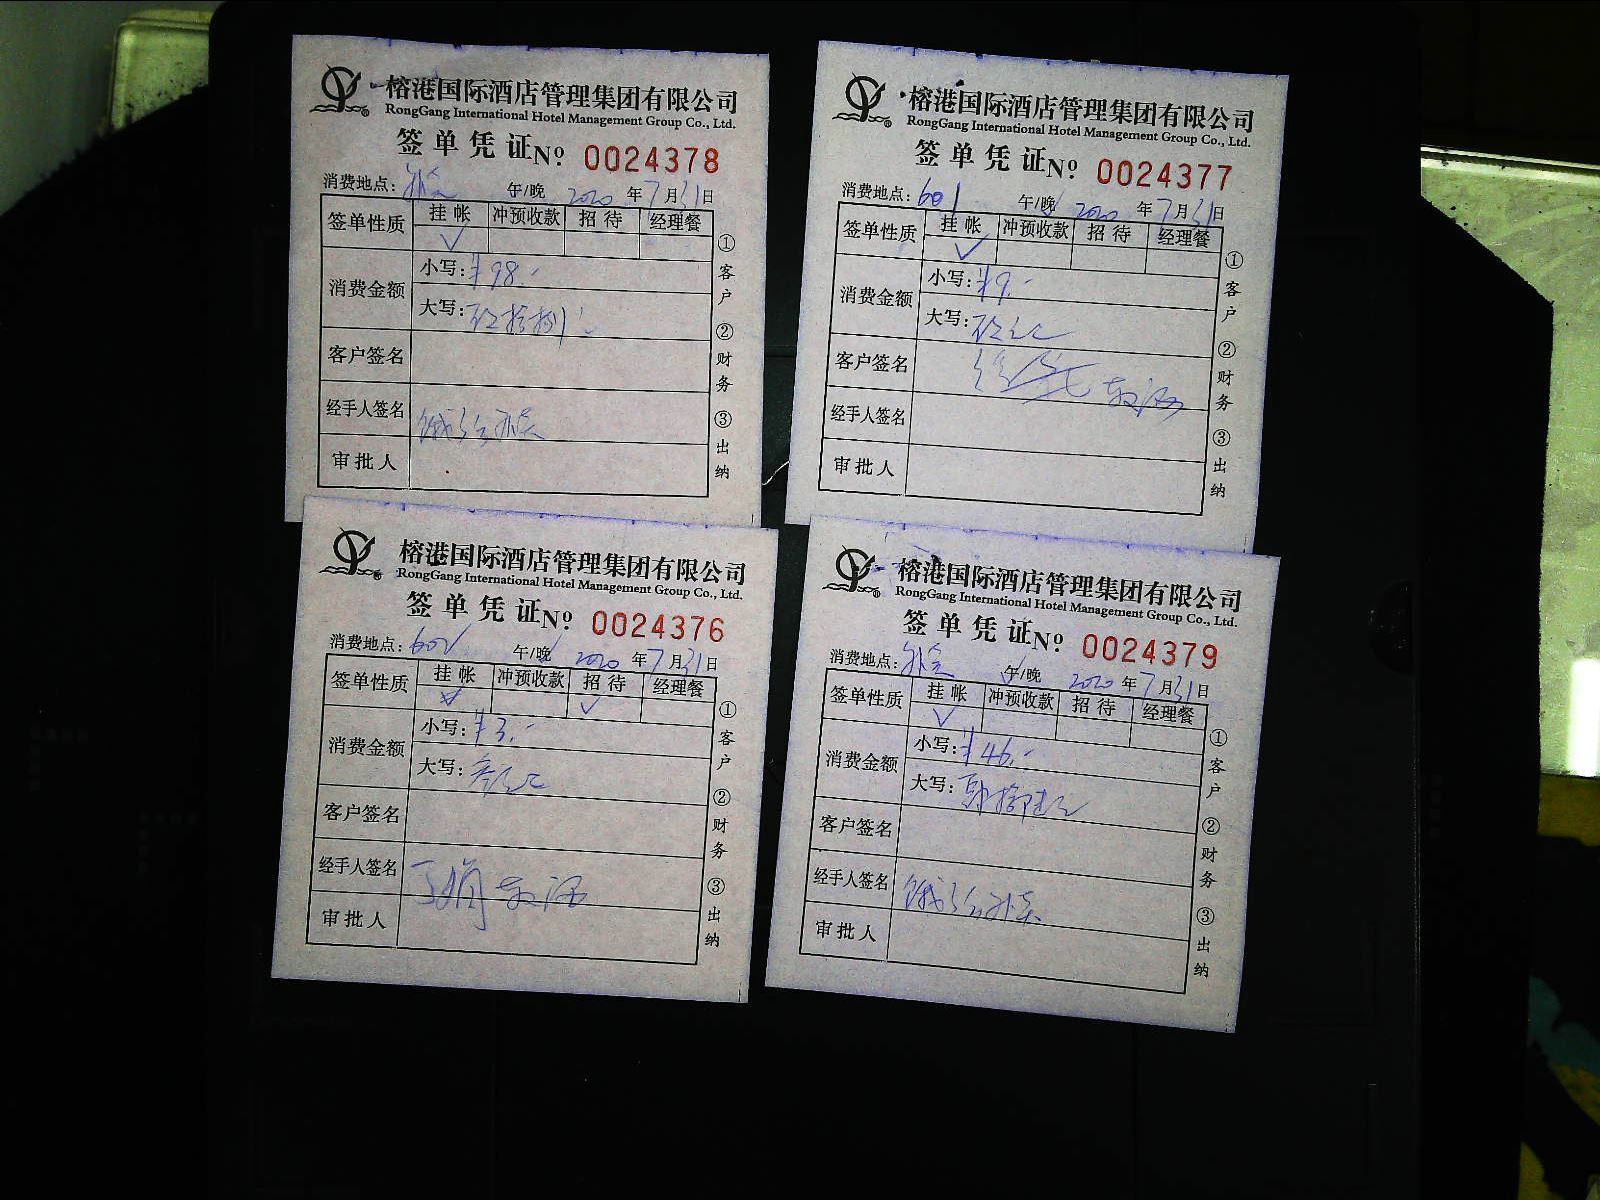 榕港国际酒店管理集团有限公司
RongGang International Hotel Management Group Co., Ltd.
签单凭证 Nº 0024378
消费地点: 外卖 午/晚 2020 年 7 月 31 日
签单性质 挂帐 冲预收款 招待 经理餐
✓
消费金额 小写: ¥98.-
大写: 玖拾捌元
客户签名
经手人签名 饿 外卖
审批人
①客户 ②财务 ③出纳
榕港国际酒店管理集团有限公司
RongGang International Hotel Management Group Co., Ltd.
签单凭证 Nº 0024377
消费地点: 601 午/晚 2020 年 7 月 31 日
签单性质 挂帐 冲预收款 招待 经理餐
✓
消费金额 小写: ¥9.-
大写: 玖元
客户签名
经手人签名
审批人
①客户 ②财务 ③出纳
榕港国际酒店管理集团有限公司
RongGang International Hotel Management Group Co., Ltd.
签单凭证 Nº 0024376
消费地点: 602 午/晚 2020 年 7 月 31 日
签单性质 挂帐 冲预收款 招待 经理餐
✓
消费金额 小写: ¥3.-
大写: 叁元
客户签名
经手人签名 丁娟
审批人
①客户 ②财务 ③出纳
榕港国际酒店管理集团有限公司
RongGang International Hotel Management Group Co., Ltd.
签单凭证 Nº 0024379
消费地点: 外卖 午/晚 2020 年 7 月 31 日
签单性质 挂帐 冲预收款 招待 经理餐
✓
消费金额 小写: ¥46.-
大写: 肆拾陆元
客户签名
经手人签名 饿 外卖
审批人
①客户 ②财务 ③出纳